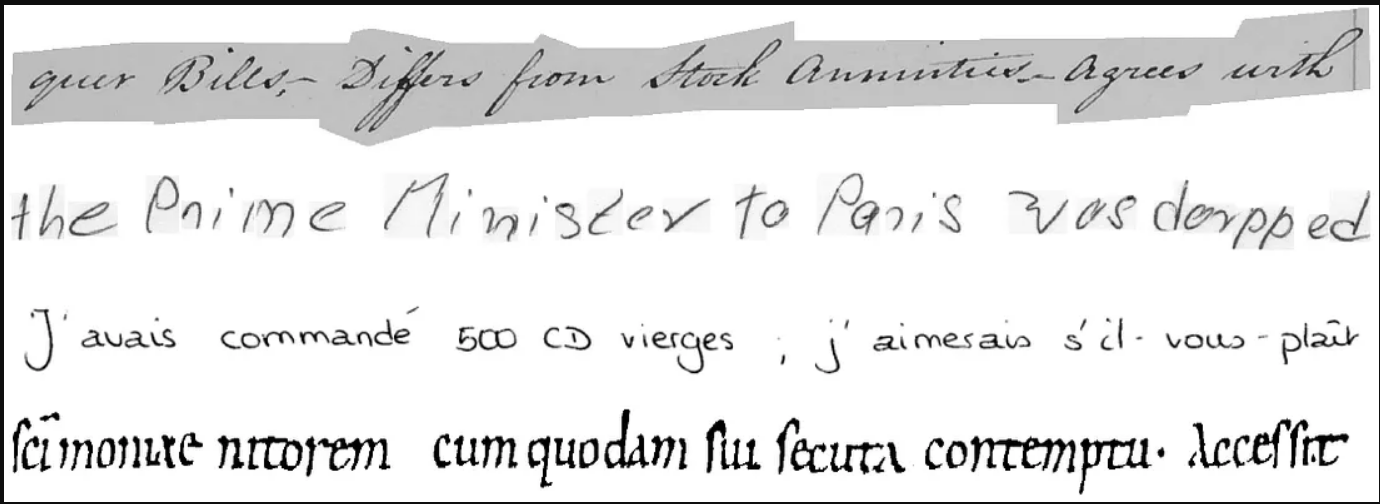 quer Bills,– Differs from Stock Annuities.– Agrees with
the Prime Minister to Paris was dorpped
J'avais commandé 500 CD vierges ; j'aimerais s'il-vous-plaît
nitorem cum quodam sui secuta contemptu. Accessit